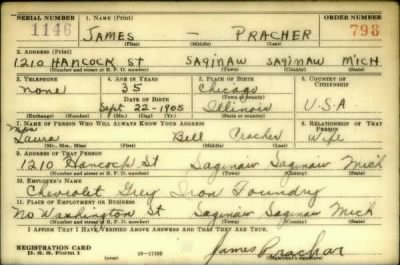 SERIAL NUMBER 1. NAME (Print) ORDER NUMBER
1146 JAMES — PRACHER 798
(First) (Middle) (Last)
2. ADDRESS (Print)
1210 HANCOCK ST SAGINAW SAGINAW MICH.
(Number and street or R. F. D. number) (Town) (County) (State)
3. TELEPHONE 4. AGE IN YEARS 5. PLACE OF BIRTH 6. COUNTRY OF CITIZENSHIP
none 35 Chicago
DATE OF BIRTH (Town or county)
Sept 22-1905 Illinois U.S.A
(Exchange) (Number) (Mo.) (Day) (Yr.) (State or country)
7. NAME OF PERSON WHO WILL ALWAYS KNOW YOUR ADDRESS 8. RELATIONSHIP OF THAT PERSON
Mrs Laura Bell Pracher Wife
(Mr., Mrs., Miss) (First) (Middle) (Last)
9. ADDRESS OF THAT PERSON
1210 Hancock St Saginaw Saginaw Mich
(Number and street or R. F. D. number) (Town) (County) (State)
10. EMPLOYER'S NAME
Chevrolet Grey Iron Foundry
11. PLACE OF EMPLOYMENT OR BUSINESS
No Washington St Saginaw Saginaw Mich
(Number and street or R. F. D. number) (Town) (County) (State)
I AFFIRM THAT I HAVE VERIFIED ABOVE ANSWERS AND THAT THEY ARE TRUE.
REGISTRATION CARD
D. S. S. Form 1 16—17105 James Pracher